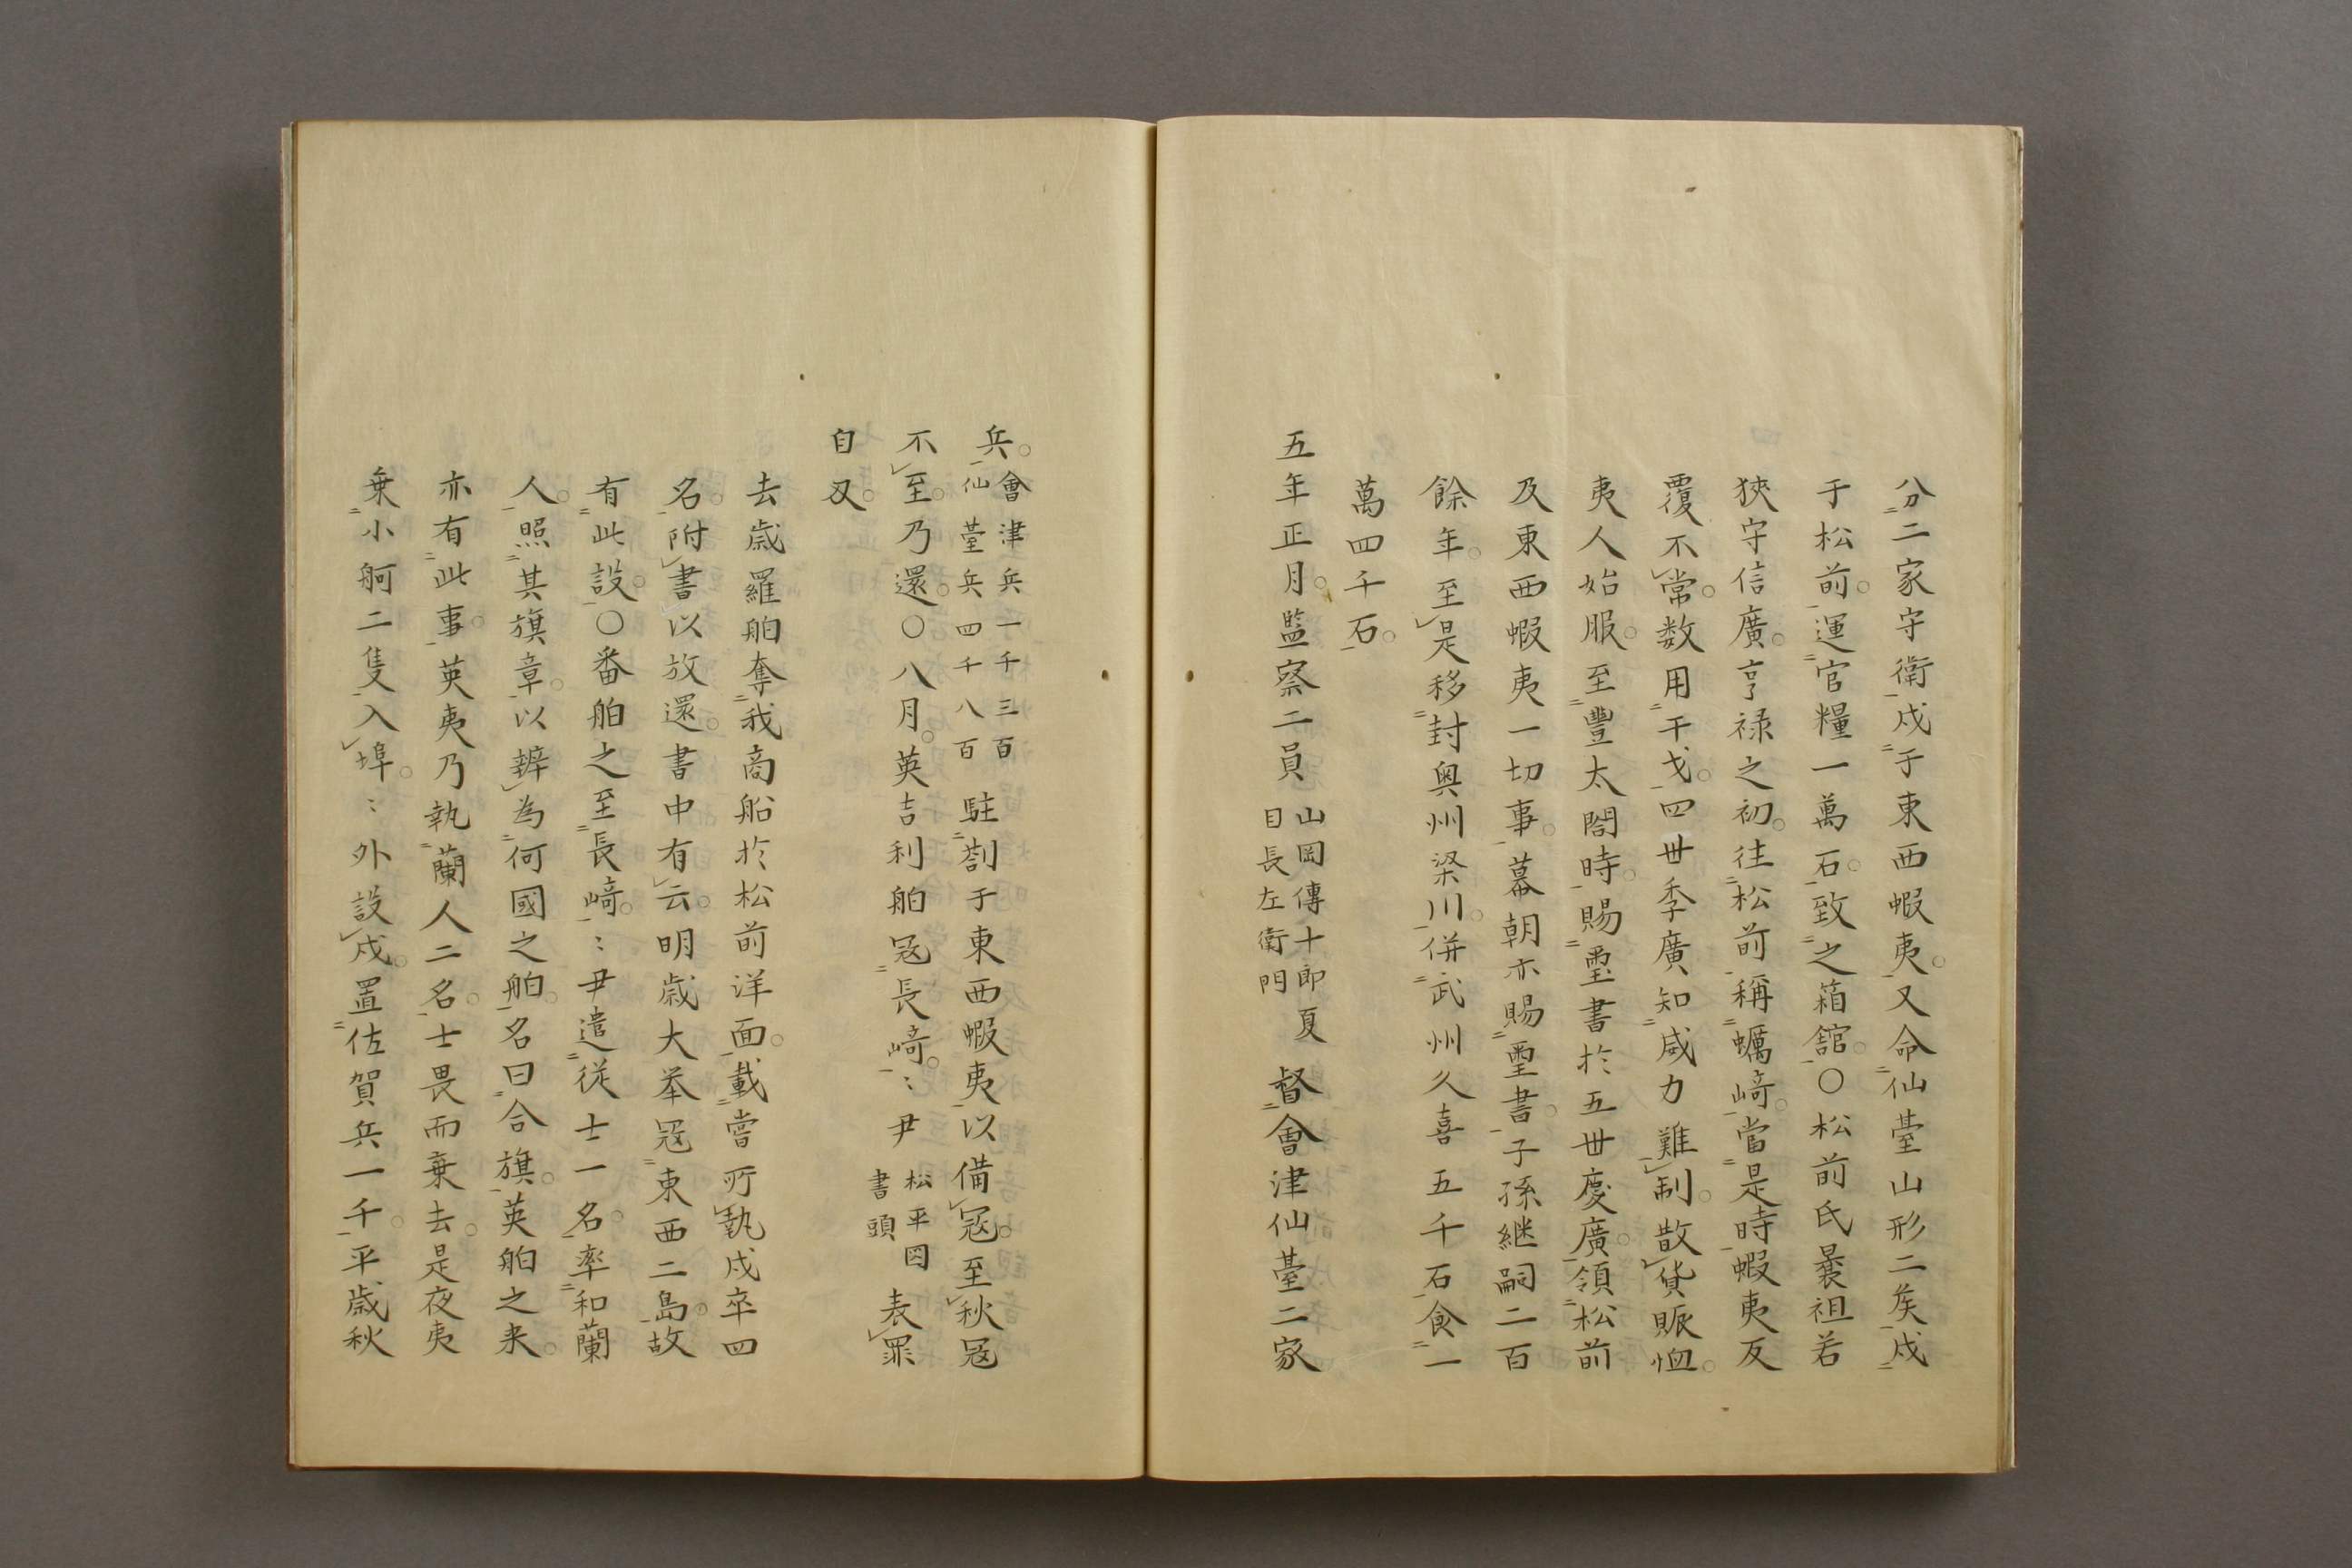 分二家守衛戍于東西蝦夷。又命仙臺山形二矦戍
于松前。運官糧一萬石。致之箱舘。〇松前氏曩祖若
狹守信廣。亨禄之初。往松前稱蠣﨑。當是時蝦夷反
覆不常。数用干戈。四世季廣知威力難制。散貨賑恤。
夷人始服。至豐太閤時。賜璽書於五世慶廣。領松前
及東西蝦夷一切事。幕朝亦賜璽書。子孫継嗣二百
餘年。至是移封奥州梁川。併武州久喜五千石食一
萬四千石。
五年正月。監察二員山岡傳十郎夏目長左衛門督會津仙臺二家
兵。會津兵一千三百仙臺兵四千八百駐劄于東西蝦夷以備冦。至秋冦
不至。乃還。〇八月。英吉利舶冦長﨑。〻尹松平図書頭表罪
自刄。
去歳羅舶奪我商船於松前洋面。載嘗所執戍卒四
名。附書以放還。書中有云。明歳大举冦東西二島。故
有此設。〇番舶之至長﨑。〻尹遣従士一名。率和蘭
人。照其旗章。以辨為何國之舶。名曰合旗。英舶之来。
亦有此事。英夷乃執蘭人二名。士畏而棄去。是夜夷
乗小舸二隻入埠。〻外設戍。置佐賀兵一千。平歳秋